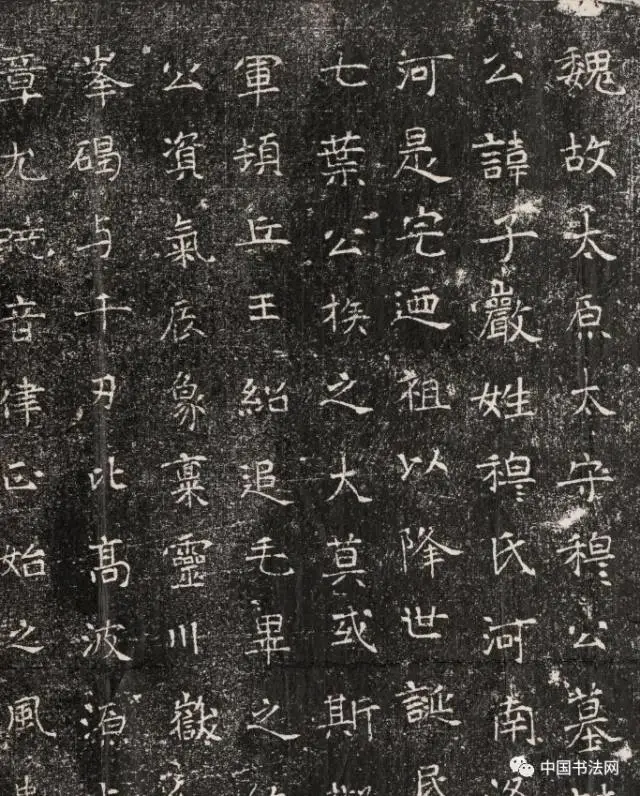 魏故太原太守穆公墓
公諱子巖姓穆氏河南洛
河是宅迺祖以降世誕民
七葉公族之大莫或斯
軍頓丘王紹追毛畢之
公資氣辰象稟靈川嶽
峯碣与千刃比髙波源
章尤曉音律正始之風
中国书法网